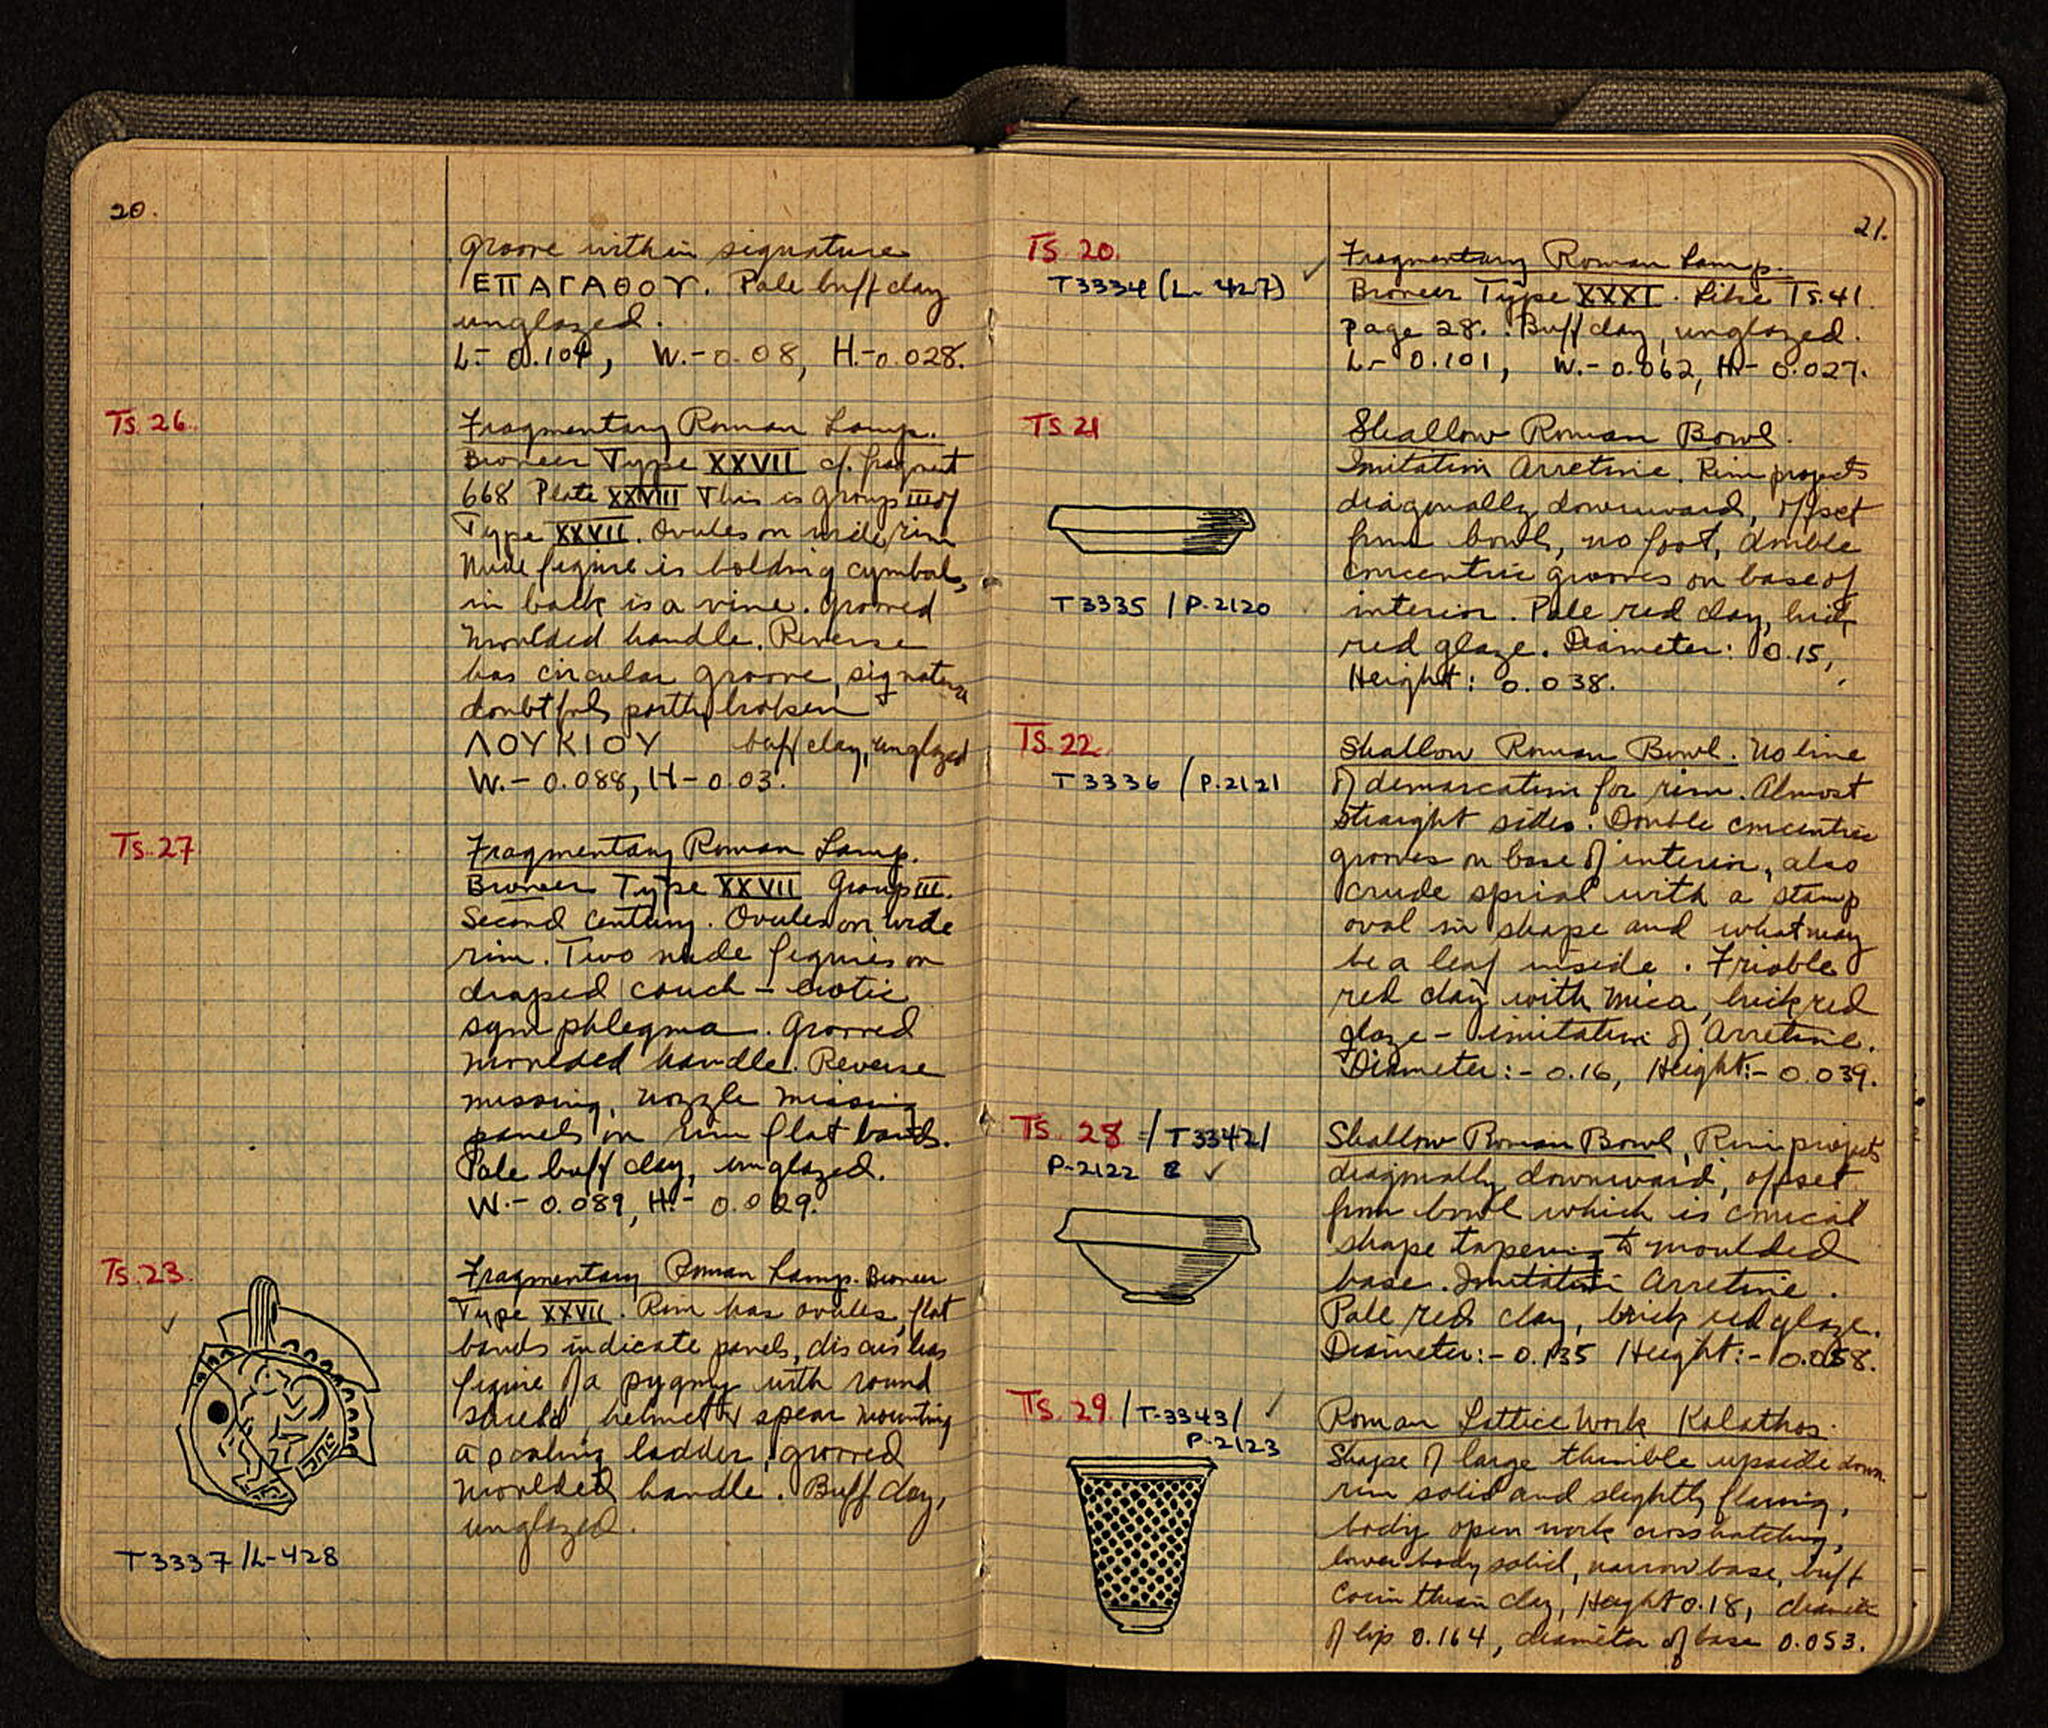 20.
groove within signature
ΕΠΑΓΑΘΟΥ. Pale buff clay
unglazed.
L.- 0.104, W.-0.08, H.-0.028.
Ts. 26.
Fragmentary Roman Lamp.
Broneer Type XXVII cf. fragment
668 Plate XXVIII This is group III of
Type XXVII. Ovules on wide rim
Nude figure is holding cymbals,
in back is a vine. grooved
moulded handle. Reverse
has circular groove, signature
doubtful, partly broken
ΛΟΥΚΙΟΥ buff clay, unglazed
W.- 0.088, H- 0.03.
Ts. 27
Fragmentary Roman Lamp.
Broneer Type XXVII Group III.
Second century. Ovules on wide
rim. Two nude figures on
draped couch - erotic
symphlegma. Grooved
moulded handle. Reverse
missing, nozzle missing
panels on rim flat bands.
Pale buff clay, unglazed.
W.- 0.089, H.- 0.029.
Ts. 23.
Fragmentary Roman Lamp. Broneer
Type XXVII. Rim has ovules, flat
bands indicate panels, discus has
figure of a pygmy with round
shield, helmet & spear mounting
a scaling ladder, grooved
moulded handle. Buff clay,
unglazed.
T3337/L-428
21.
Ts. 20.
T3334 (L-427) ✓
Fragmentary Roman Lamp.
Broneer Type XXXI. Like Ts. 41
page 28. Buff clay, unglazed.
L.- 0.101, W.- 0.062, H.- 0.027.
Ts. 21
T3335 / P-2120
Shallow Roman Bowl.
Imitation Arretine. Rim projects
diagonally downward, offset
from bowl, no foot, double
concentric grooves on base of
interior. Pale red clay, brick
red glaze. Diameter: 0.15,
Height: 0.038.
Ts. 22.
T3336 / P.2121
Shallow Roman Bowl. No line
of demarcation for rim. Almost
straight sides. Double concentric
grooves on base of interior, also
crude sprial with a stamp
oval in shape and what may
be a leaf inside. Friable
red clay with mica, brick red
glaze - imitation of Arretine.
Diameter:- 0.16, Height:- 0.039.
Ts. 28 =/T3342/
P-2122 ✓
Shallow Roman Bowl, Rim projects
diagonally downward, offset
from bowl which is conical
shape tapering to moulded
base. Imitation Arretine.
Pale red clay, brick red glaze.
Diameter:- 0.135 Height:- 0.058.
Ts. 29. /T-3343/ ✓
P-2123
Roman Lattice Work Kalathos.
Shape of large thimble upside down.
rim solid and slightly flaring,
body open work crosshatching,
lower body solid, narrow base, buff
Corinthian clay, Height 0.18, diameter
of lip 0.164, diameter of base 0.053.